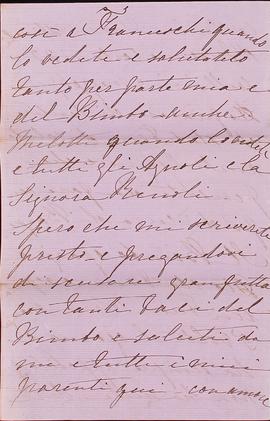 così a Franceschi quando
lo vedete e salutatelo
tanto per parte mia e
del Bimbo anche
quando lo vedete
e tutti gli Agnoli e la
Signora
spero che mi scriverete
presto e pregandovi
di scusare gran fretta
con tanti baci del
Bimbo e saluti da
me e tutti i miei
parenti qui con amore